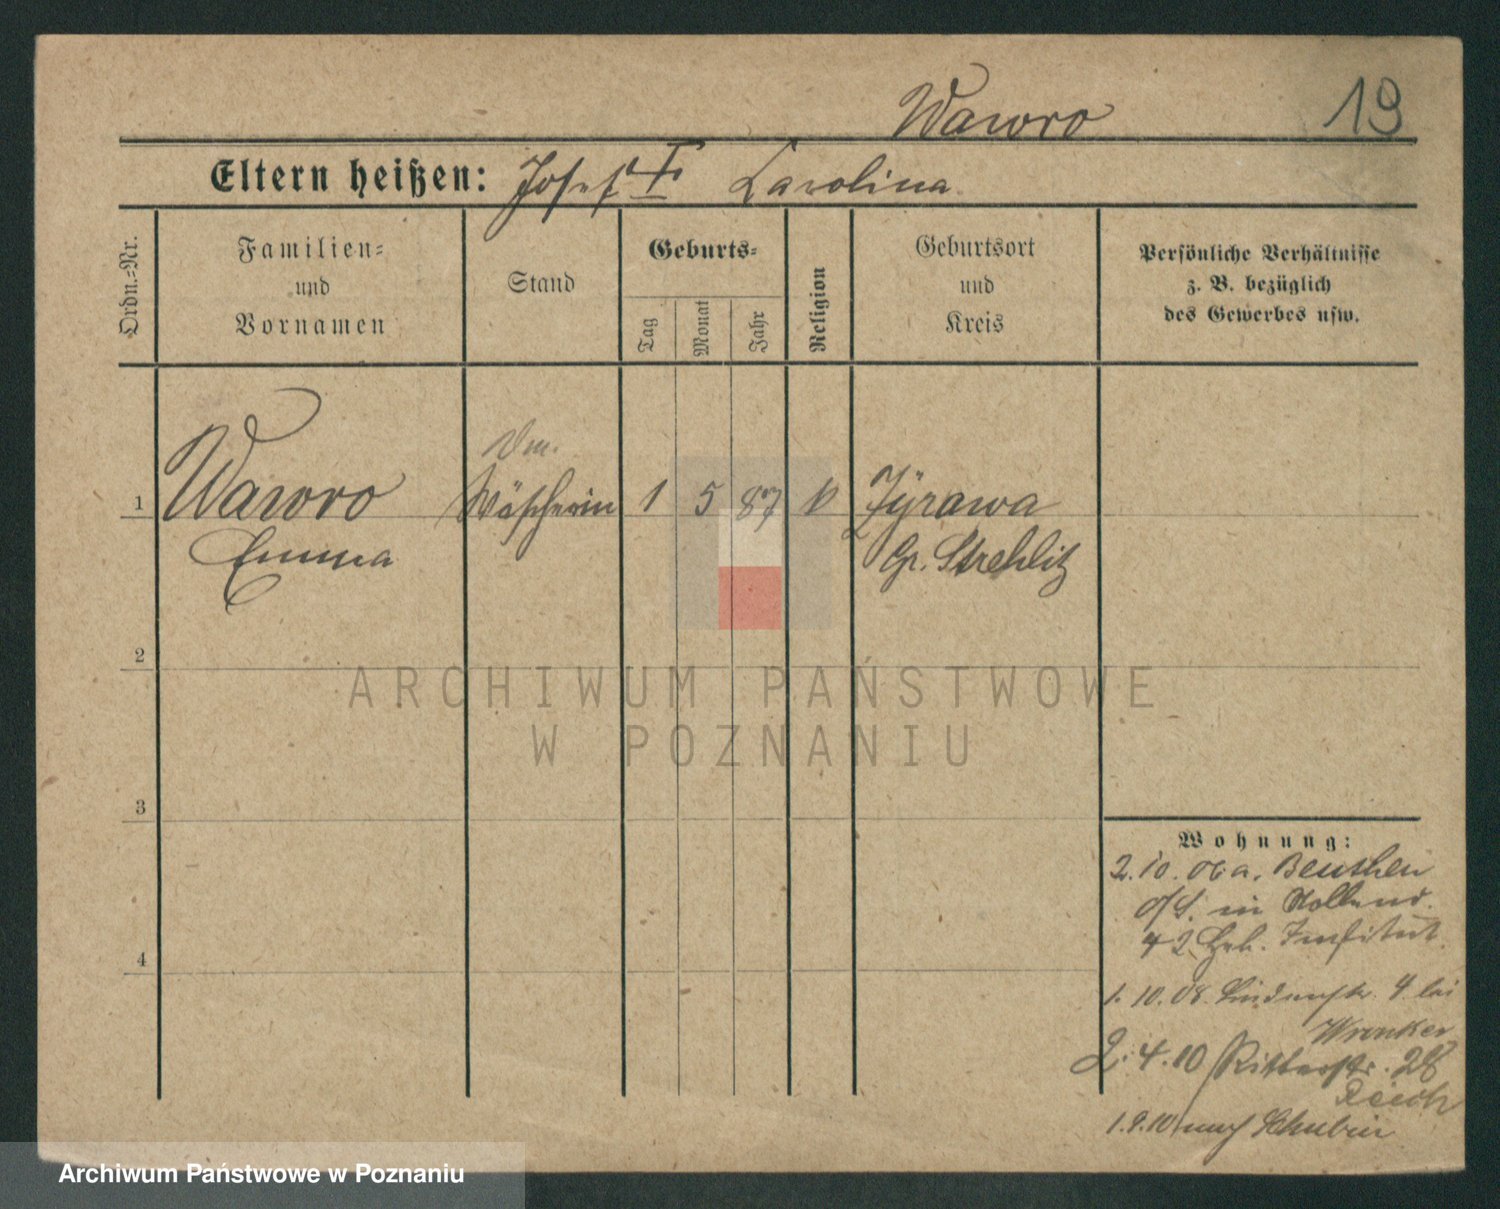 Wawro
19
Eltern heißen: Josef † Karolina
Ordn.-Nr.
Familien-
und
Vornamen
Stand
Geburts-
Tag
Monat
Jahr
Religion
Geburtsort
und
Kreis
Persönliche Verhältnisse
z. B. bezüglich
des Gewerbes usw.
1 Wawro Wäscherin 1 5 87 k Zyrawa
Emma Gr. Strehlitz
2
3
4
Wohnung:
2.10.06 a. Beuthen
o/S. in
42 Institut
1.10.08. Lindenstr. 4 bei
Wronker
2.4.10 Ritterstr. 28
1.9.10 nach Schubin
ARCHIWUM PAŃSTWOWE
W POZNANIU
Archiwum Państwowe w Poznaniu